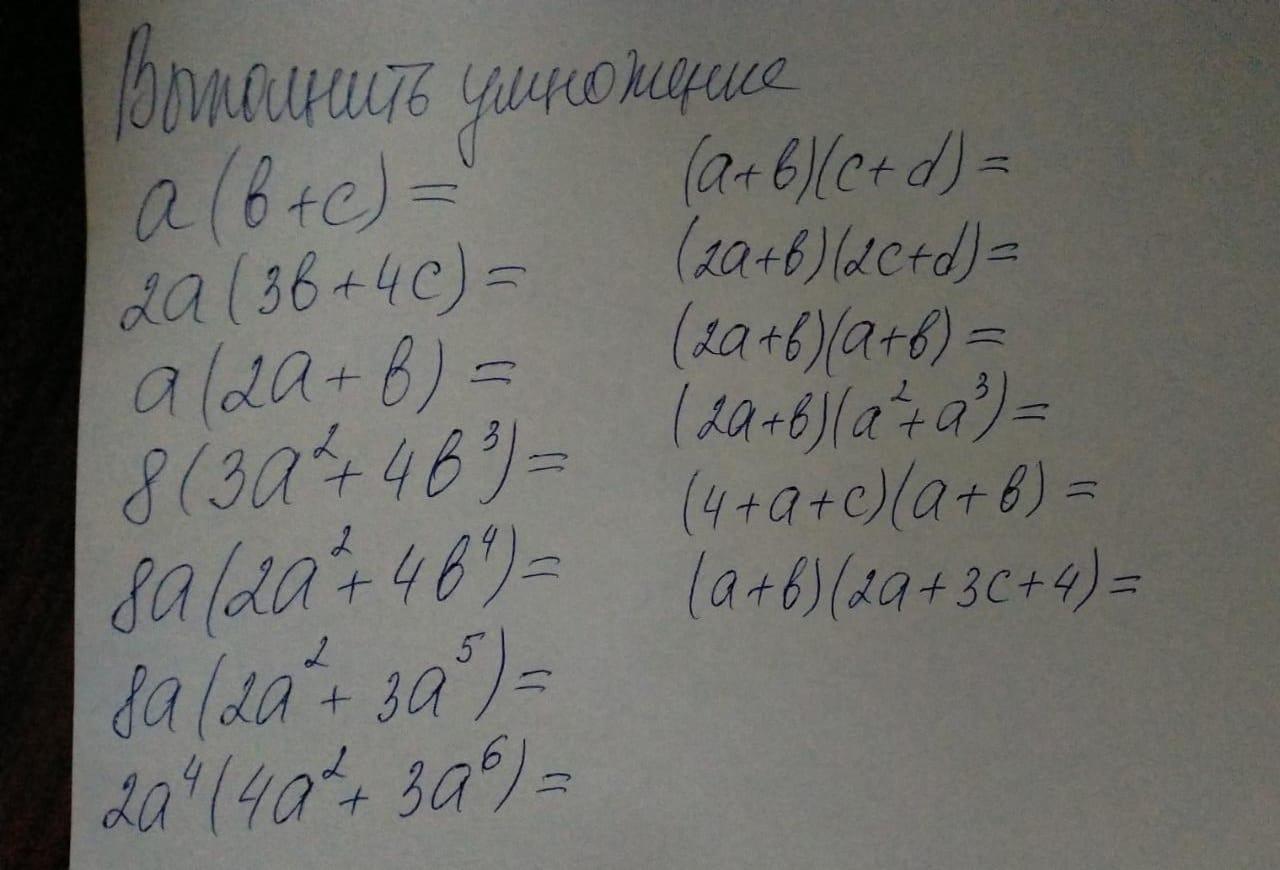 Выполнить умножение
a(b+c)=
2a(3b+4c)=
a(2a+b)=
8(3a²+4b³)=
8a(2a²+4b⁴)=
8a(2a²+3a⁵)=
2a⁴(4a²+3a⁶)=
(a+b)(c+d)=
(2a+b)(2c+d)=
(2a+b)(a+b)=
(2a+b)(a²+a³)=
(4+a+c)(a+b)=
(a+b)(2a+3c+4)=